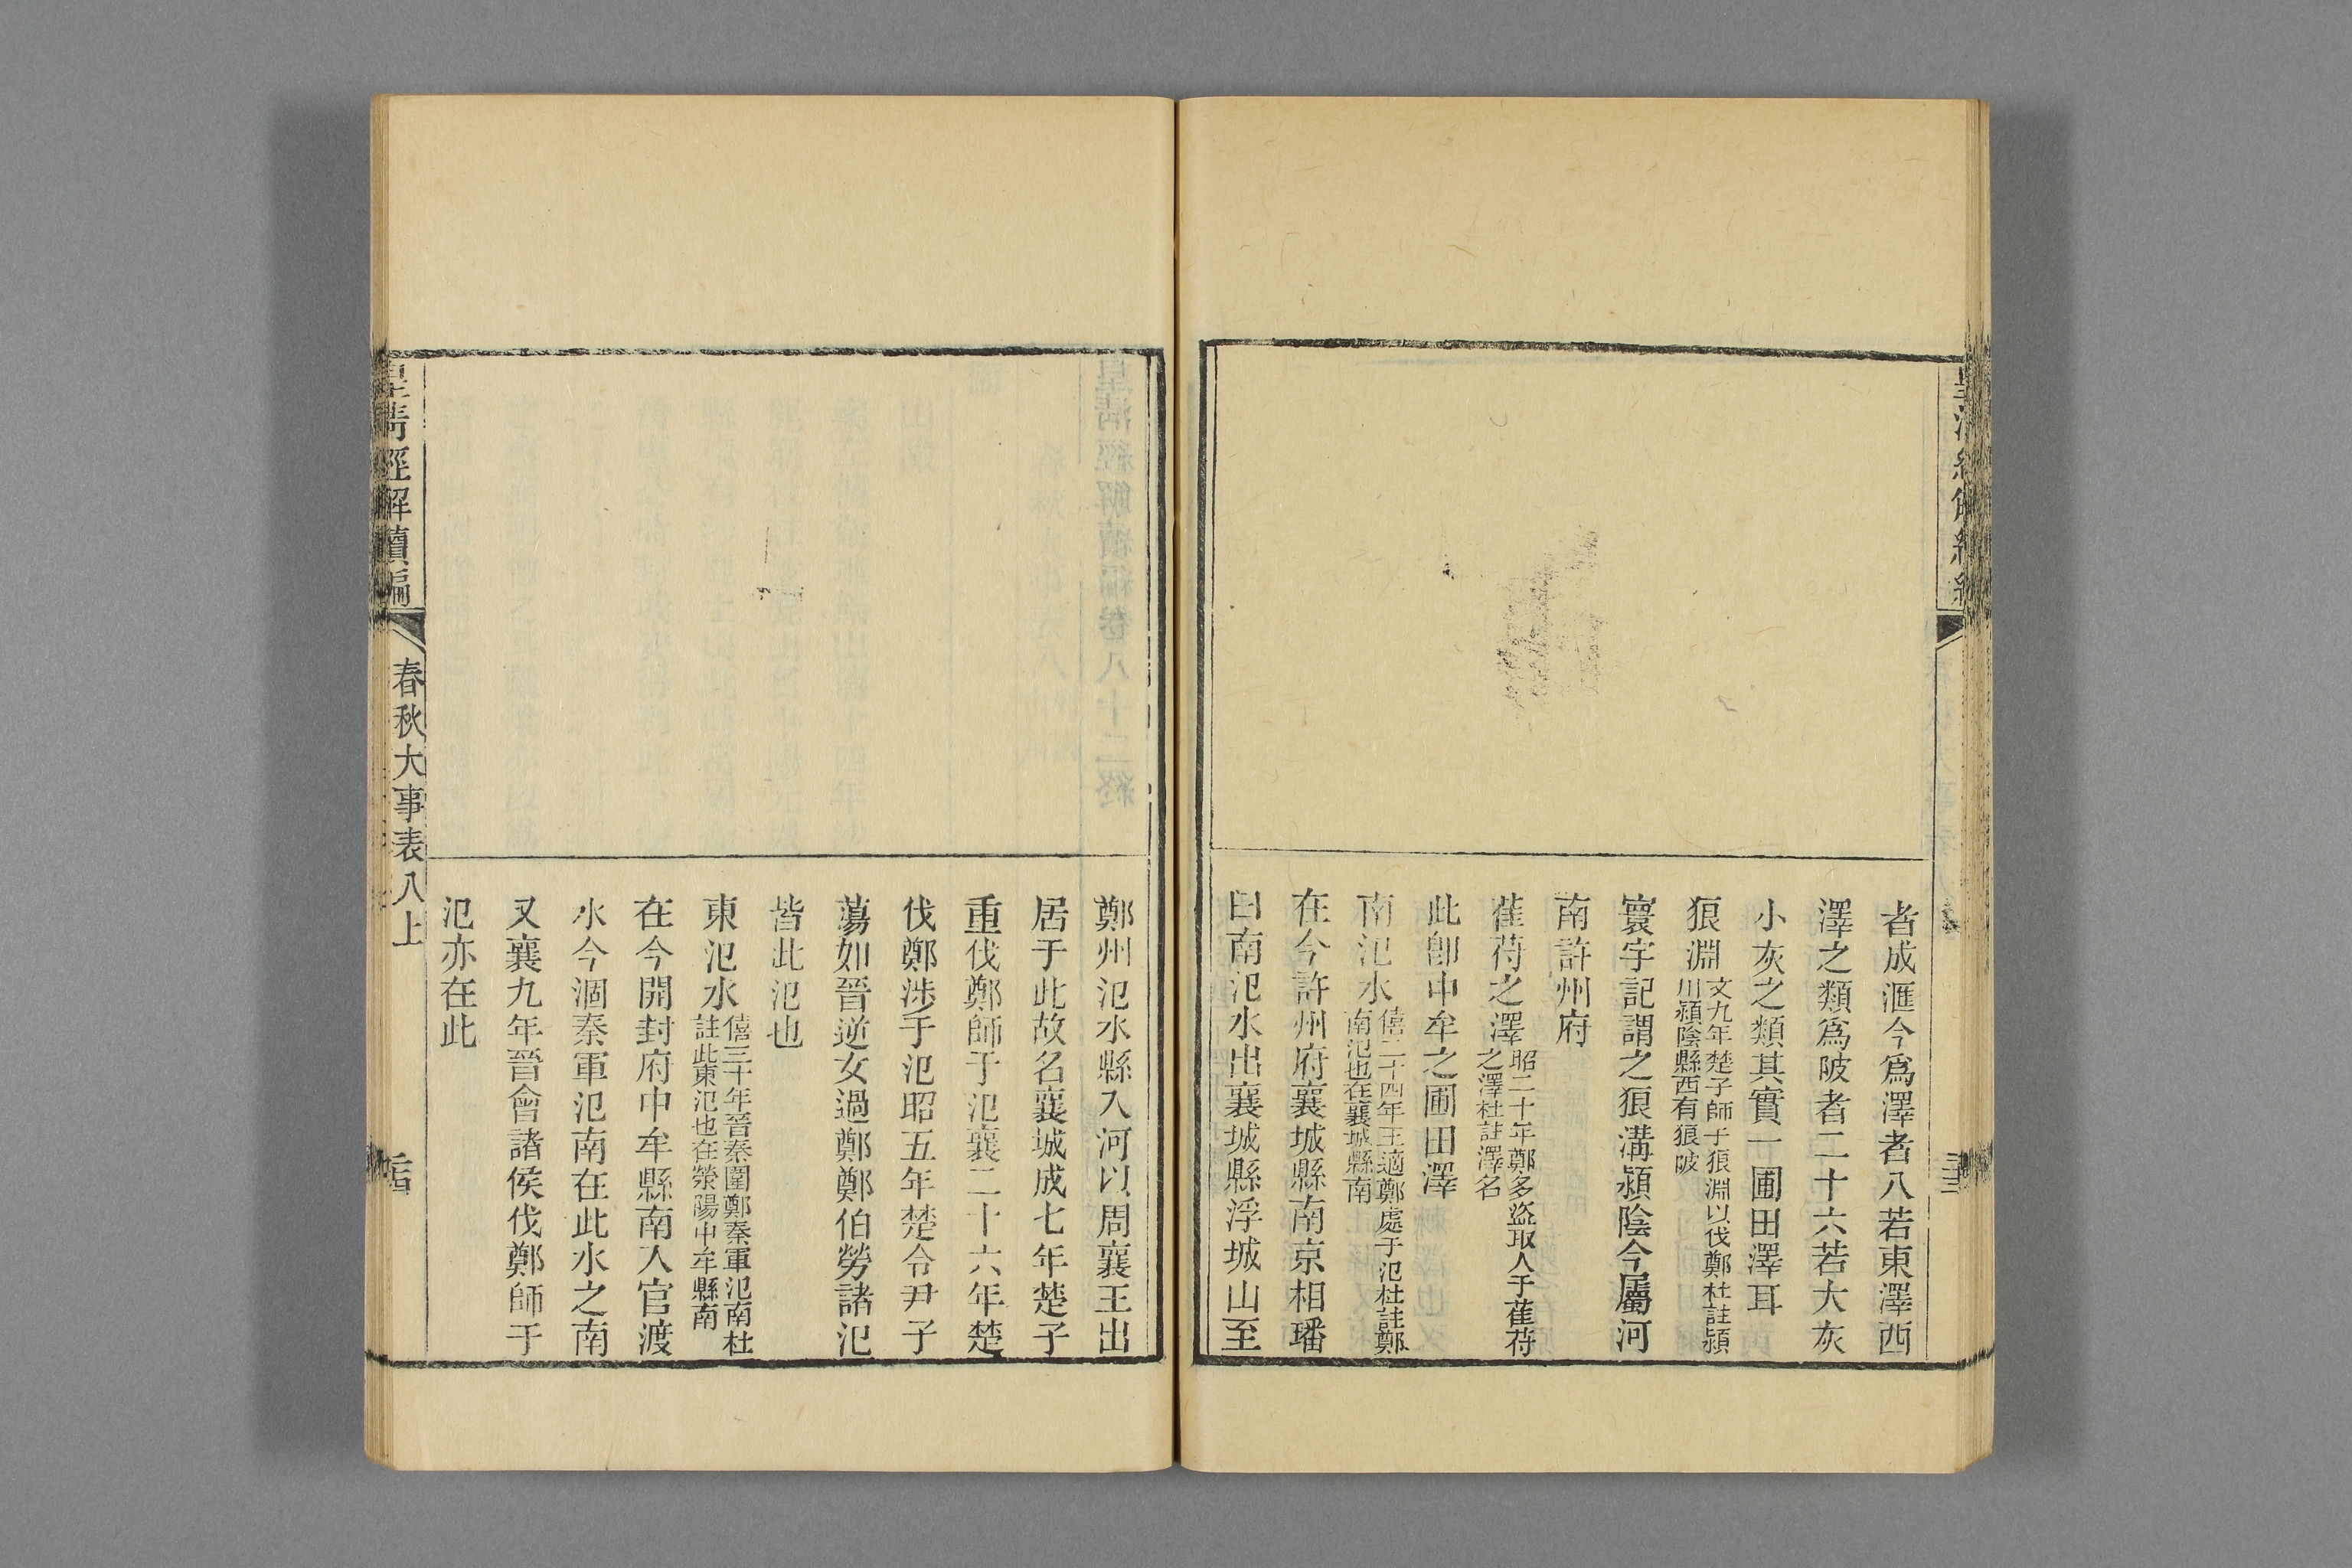 者成滙今爲澤者八若東澤西
澤之類爲陂者二十六若大灰
小灰之類其實一圃田澤耳
狼淵
文九年楚子師于狼淵以伐鄭杜註潁
川潁陰縣西有狼陂
寰宇記謂之狼溝潁陰今屬河
南許州府
萑苻之澤
昭二十年鄭多盜取人于萑苻
之澤杜註澤名
此卽中牟之圃田澤
南氾水
僖二十四年王適鄭處于氾杜註鄭
南氾也在襄城縣南
在今許州府襄城縣南京相璠
曰南氾水出襄城縣浮城山至
鄭州氾水縣入河以周襄王出
居于此故名襄城成七年楚子
重伐鄭師于氾襄二十六年楚
伐鄭涉于氾昭五年楚令尹子
蕩如晉逆女過鄭鄭伯勞諸氾
皆此氾也
東氾水
僖三十年晉秦圍鄭秦軍氾南杜
註此東氾也在滎陽中牟縣南
在今開封府中牟縣南入官渡
水今涸秦軍氾南在此水之南
又襄九年晉會諸侯伐鄭師于
氾亦在此
皇淸經解續編
春秋大事表八上